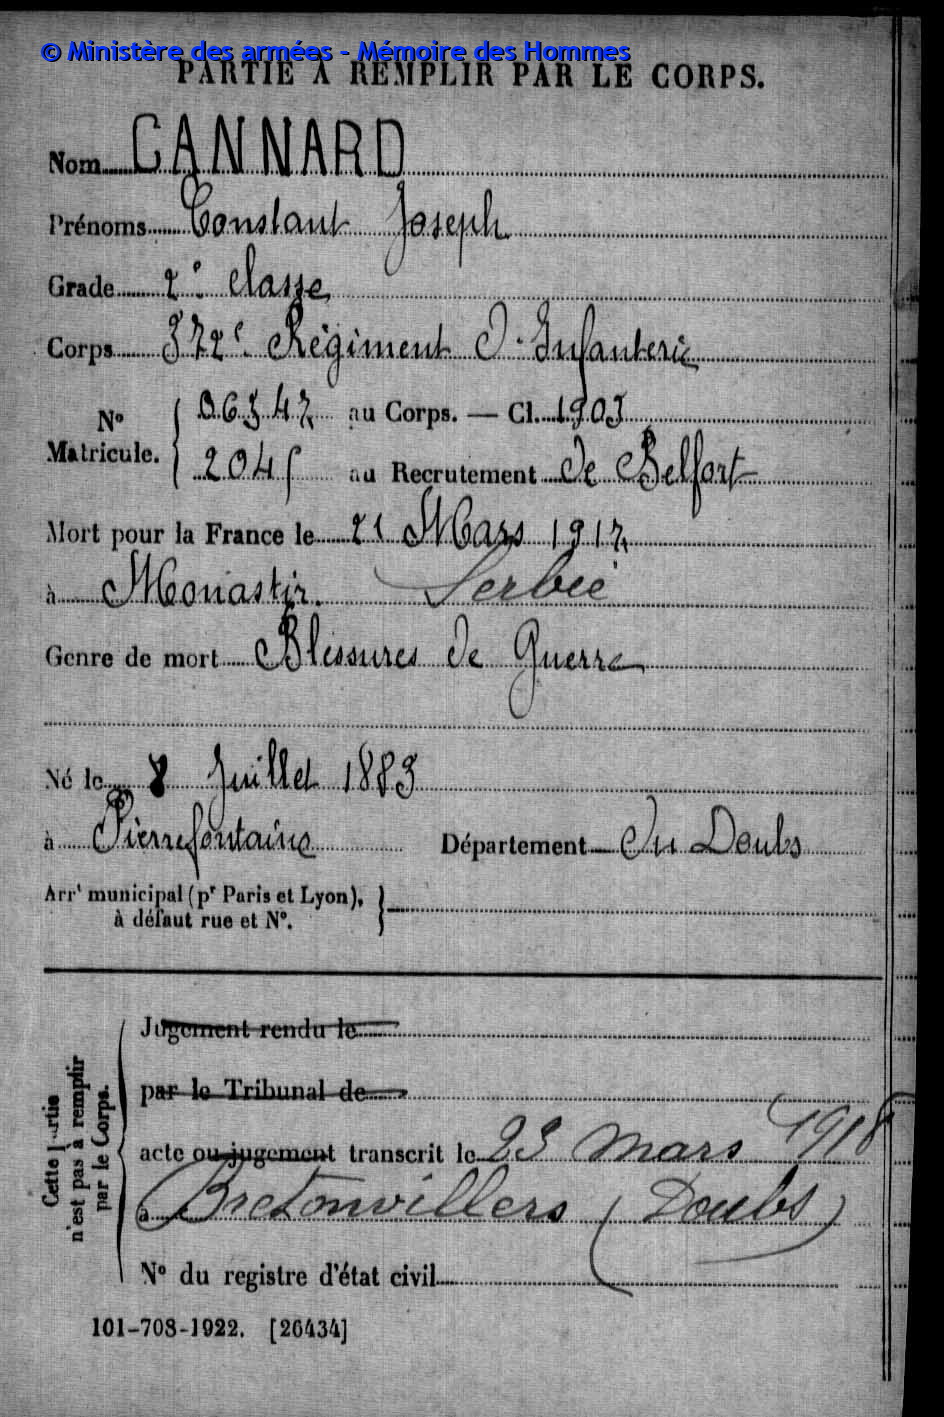 © Ministère des armées - Mémoire des Hommes
PARTIE À REMPLIR PAR LE CORPS.
Nom CANNARD
Prénoms Constant Joseph
Grade 2e classe
Corps 372e Régiment d'Infanterie
No Matricule. 06347 au Corps. — Cl. 1903
2045 au Recrutement de Belfort
Mort pour la France le 21 Mars 1917
à Monastir. Serbie
Genre de mort Blessures de Guerre
Né le 8 Juillet 1883
à Pierrefontaine Département du Doubs
Arrt municipal (pr Paris et Lyon),
à défaut rue et No.
Cette partie
n'est pas à remplir
par le Corps.
Jugement rendu le
par le Tribunal de
acte ou jugement transcrit le 23 mars 1918
à Bretonvillers (Doubs)
No du registre d'état civil
101-708-1922. [26434]